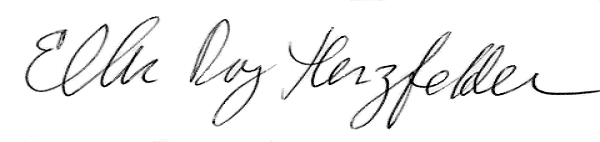 Ellen Roy Herzfelder